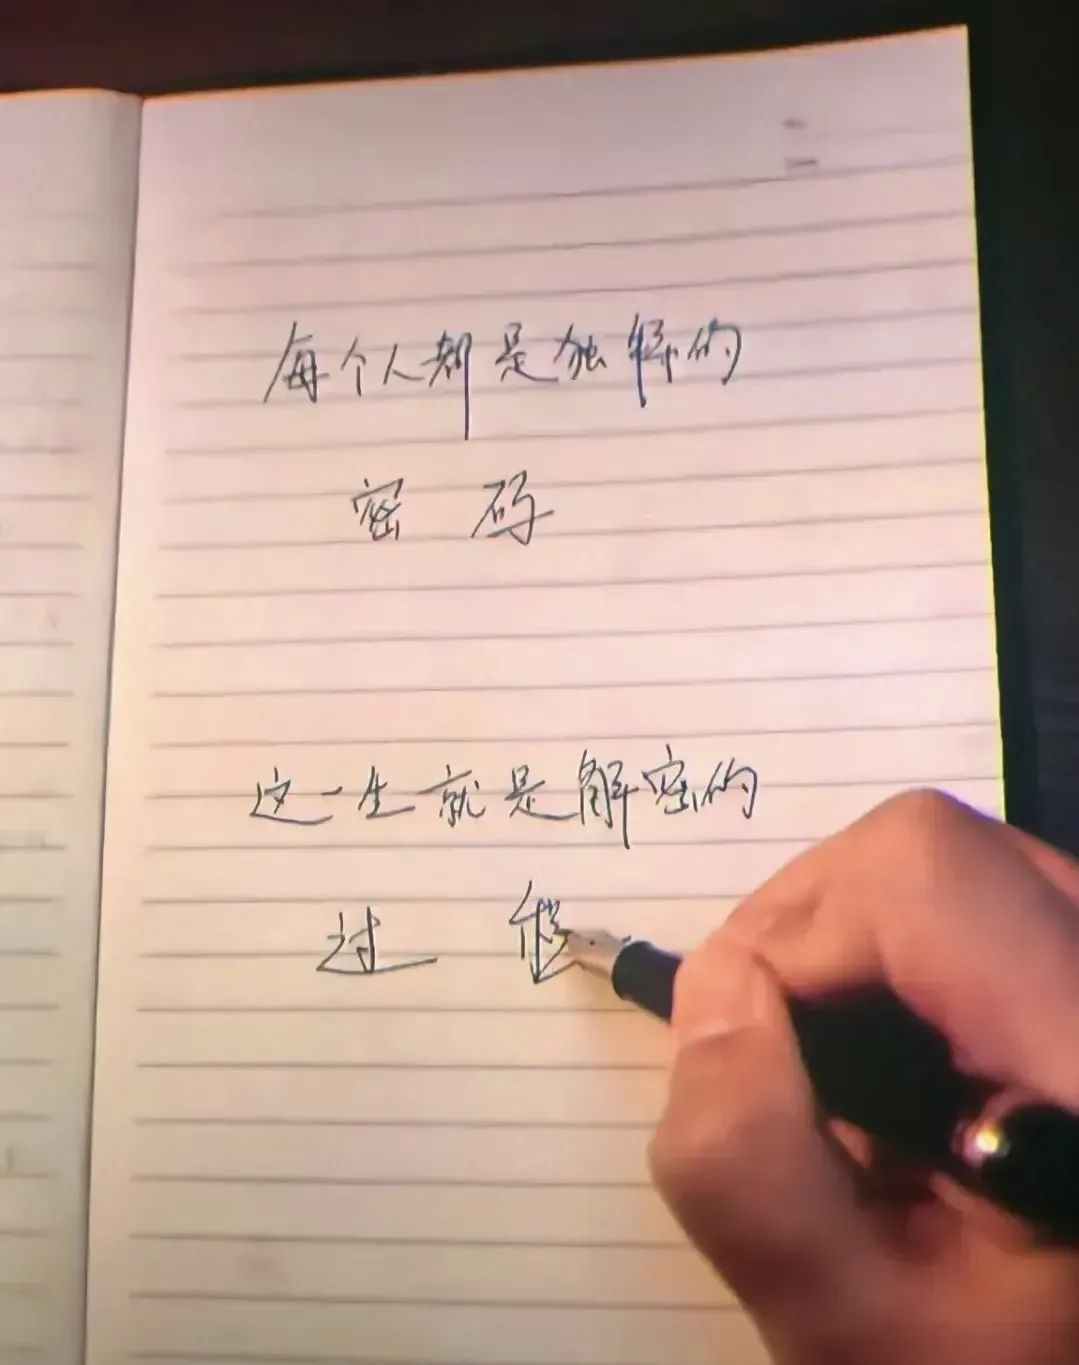 每个人都是独特的
密码
这一生就是解密的
过程